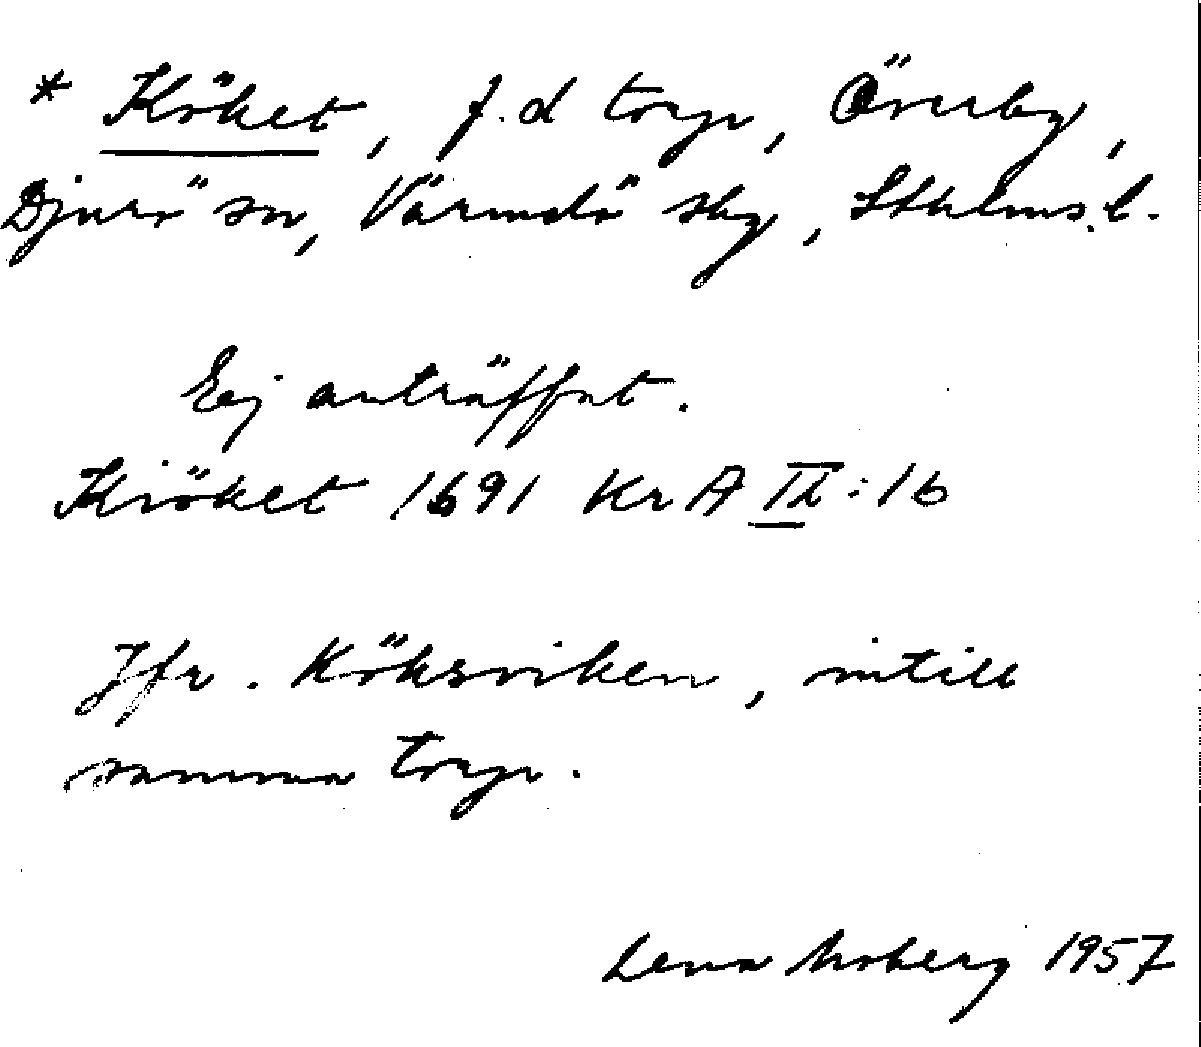 * Köket, f.d torp, Överby,
Djurö sn, Värmdö skg, Sthlms.l.
Ej anträffat.
Kiöket 1691 KrA IX:16
Jfr. Köksviken, intill
samma torp.
Lena Moberg 1957